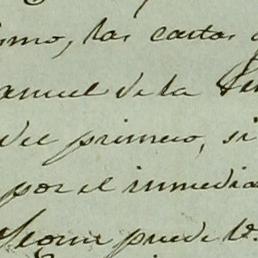 omo, las cartas
anuel de la
del primero, si
por el inmedia
puede V.